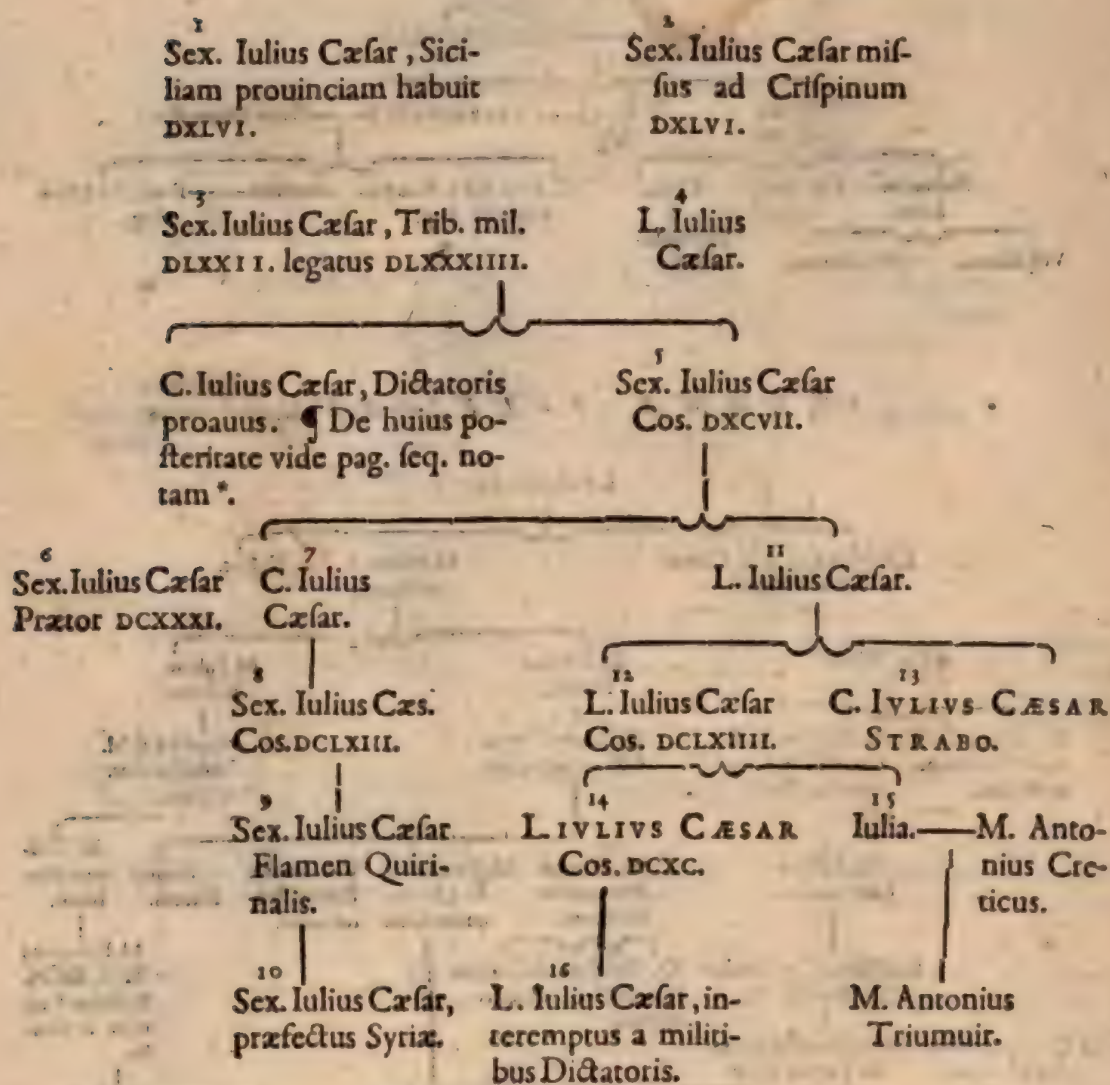 1
Sex. Iulius Cæſar, Sici-
liam prouinciam habuit
DXLVI.
2
Sex. Iulius Cæſar miſ-
ſus ad Criſpinum
DXLVI.
3
Sex. Iulius Cæſar, Trib. mil.
DLXXII. legatus DLXXXIIII.
4
L. Iulius
Cæſar.
C. Iulius Cæſar, Dictatoris
proauus. ¶ De huius po-
ſteritate vide pag. ſeq. no-
tam *.
5
Sex. Iulius Cæſar
Cos. DXCVII.
6
Sex. Iulius Cæſar
Prætor DCXXXI.
7
C. Iulius
Cæſar.
11
L. Iulius Cæſar.
8
Sex. Iulius Cæs.
Cos. DCLXIII.
12
L. Iulius Cæſar
Cos. DCLXIIII.
13
C. IVLIVS CÆSAR
STRABO.
9
Sex. Iulius Cæſar
Flamen Quiri-
nalis.
14
L IVLIVS CÆSAR
Cos. DCXC.
15
Iulia.
M. Anto-
nius Cre-
ticus.
10
Sex. Iulius Cæſar,
præfectus Syriæ.
16
L. Iulius Cæſar, in-
teremptus a militi-
bus Dictatoris.
M. Antonius
Triumuir.